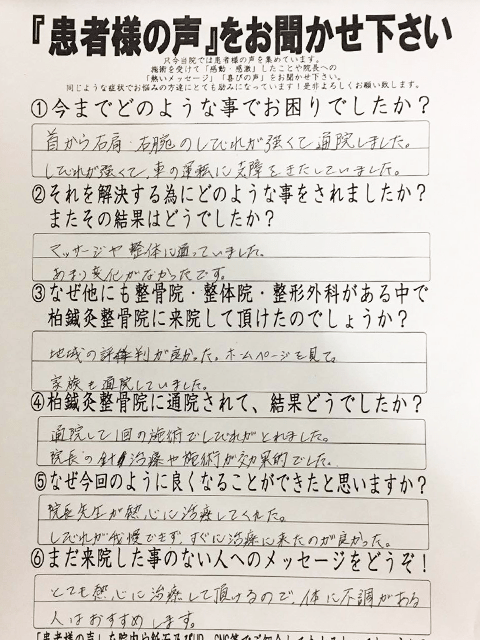 『患者様の声』をお聞かせ下さい
只今当院では患者様の声を集めています。
施術を受けて「感動・感激」したことや院長への
「熱いメッセージ」「喜びの声」をお聞かせ下さい。
同じような症状でお悩みの方達にとても励みになっています！是非よろしくお願い致します。
①今までどのような事でお困りでしたか？
首から右肩・右腕のしびれが強くて通院しました。
しびれが強くて、車の運転に支障をきたしていました。
②それを解決する為にどのような事をされましたか？
またその結果はどうでしたか？
マッサージや整体に通っていました。
あまり変化がなかったです。
③なぜ他にも整骨院・整体院・整形外科がある中で
柏鍼灸整骨院に来院して頂けたのでしょうか？
地域の評判が良かった。ホームページを見て。
家族も通院していました。
④柏鍼灸整骨院に通院されて、結果どうでしたか？
通院して1回の施術でしびれがとれました。
院長の針治療や施術が効果的でした。
⑤なぜ今回のように良くなることができたと思いますか？
院長先生が熱心に治療してくれた。
しびれが我慢できず、すぐに治療に来たのが良かった。
⑥まだ来院した事のない人へのメッセージをどうぞ！
とても熱心に治療して頂けるので、体に不調がある
人はおすすめします。